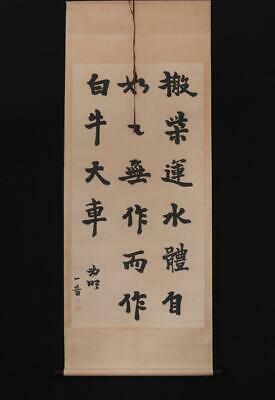 搬柴運水體自
如々無作而作
白牛大車
一音